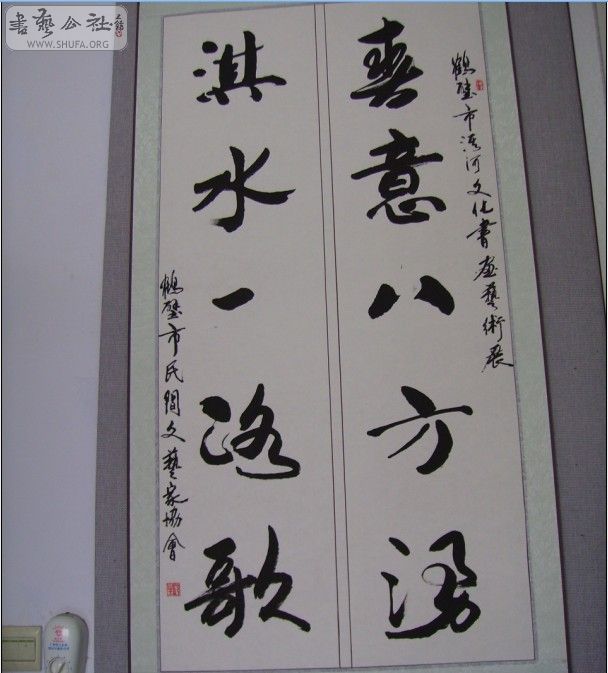 書藝公社
WWW.SHUFA.ORG
鶴壁市淇河文化書畫藝術展
春意八方湧
淇水一路歌
鶴壁市民間文藝家協會